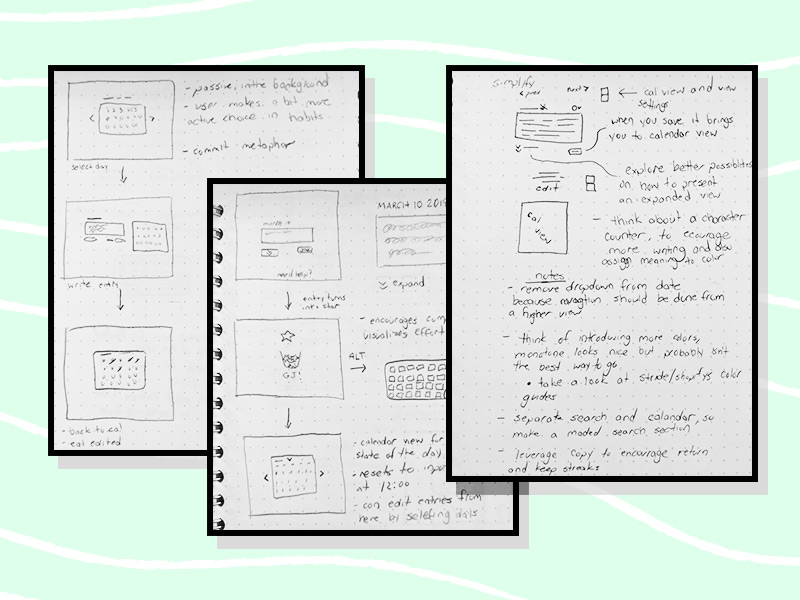 - passive, in the background
- user makes a bit more
active choice in habits
- commit metaphor
select day
write entry
- back to cal
- cal edited
MARCH 10 201
need help?
expand
entry turns
into star
- encourages
visualizes effort
GJ!
ALT
- calendar view for
state of the day
- resets to
at 12:00
- can edit entries from
here by selecting days
simplify
< prev
next >
← cal view and view
settings
when you save it brings
you to calendar view
edit
explore better possiblities
on how to present
an expanded view
cal
view
- think about a character
counter, to ecourage
more writing and
assign meaning to color
notes
- remove dropdown from date
because navagtion should be done from
a higher view
- think of introducing more colors,
monotone looks nice but probably isnt
the best way to go
• take a look at stride/shopify's color
guides
- separate search and calandar, so
make a moded search section
- leverage copy to encourage return
and keep streaks